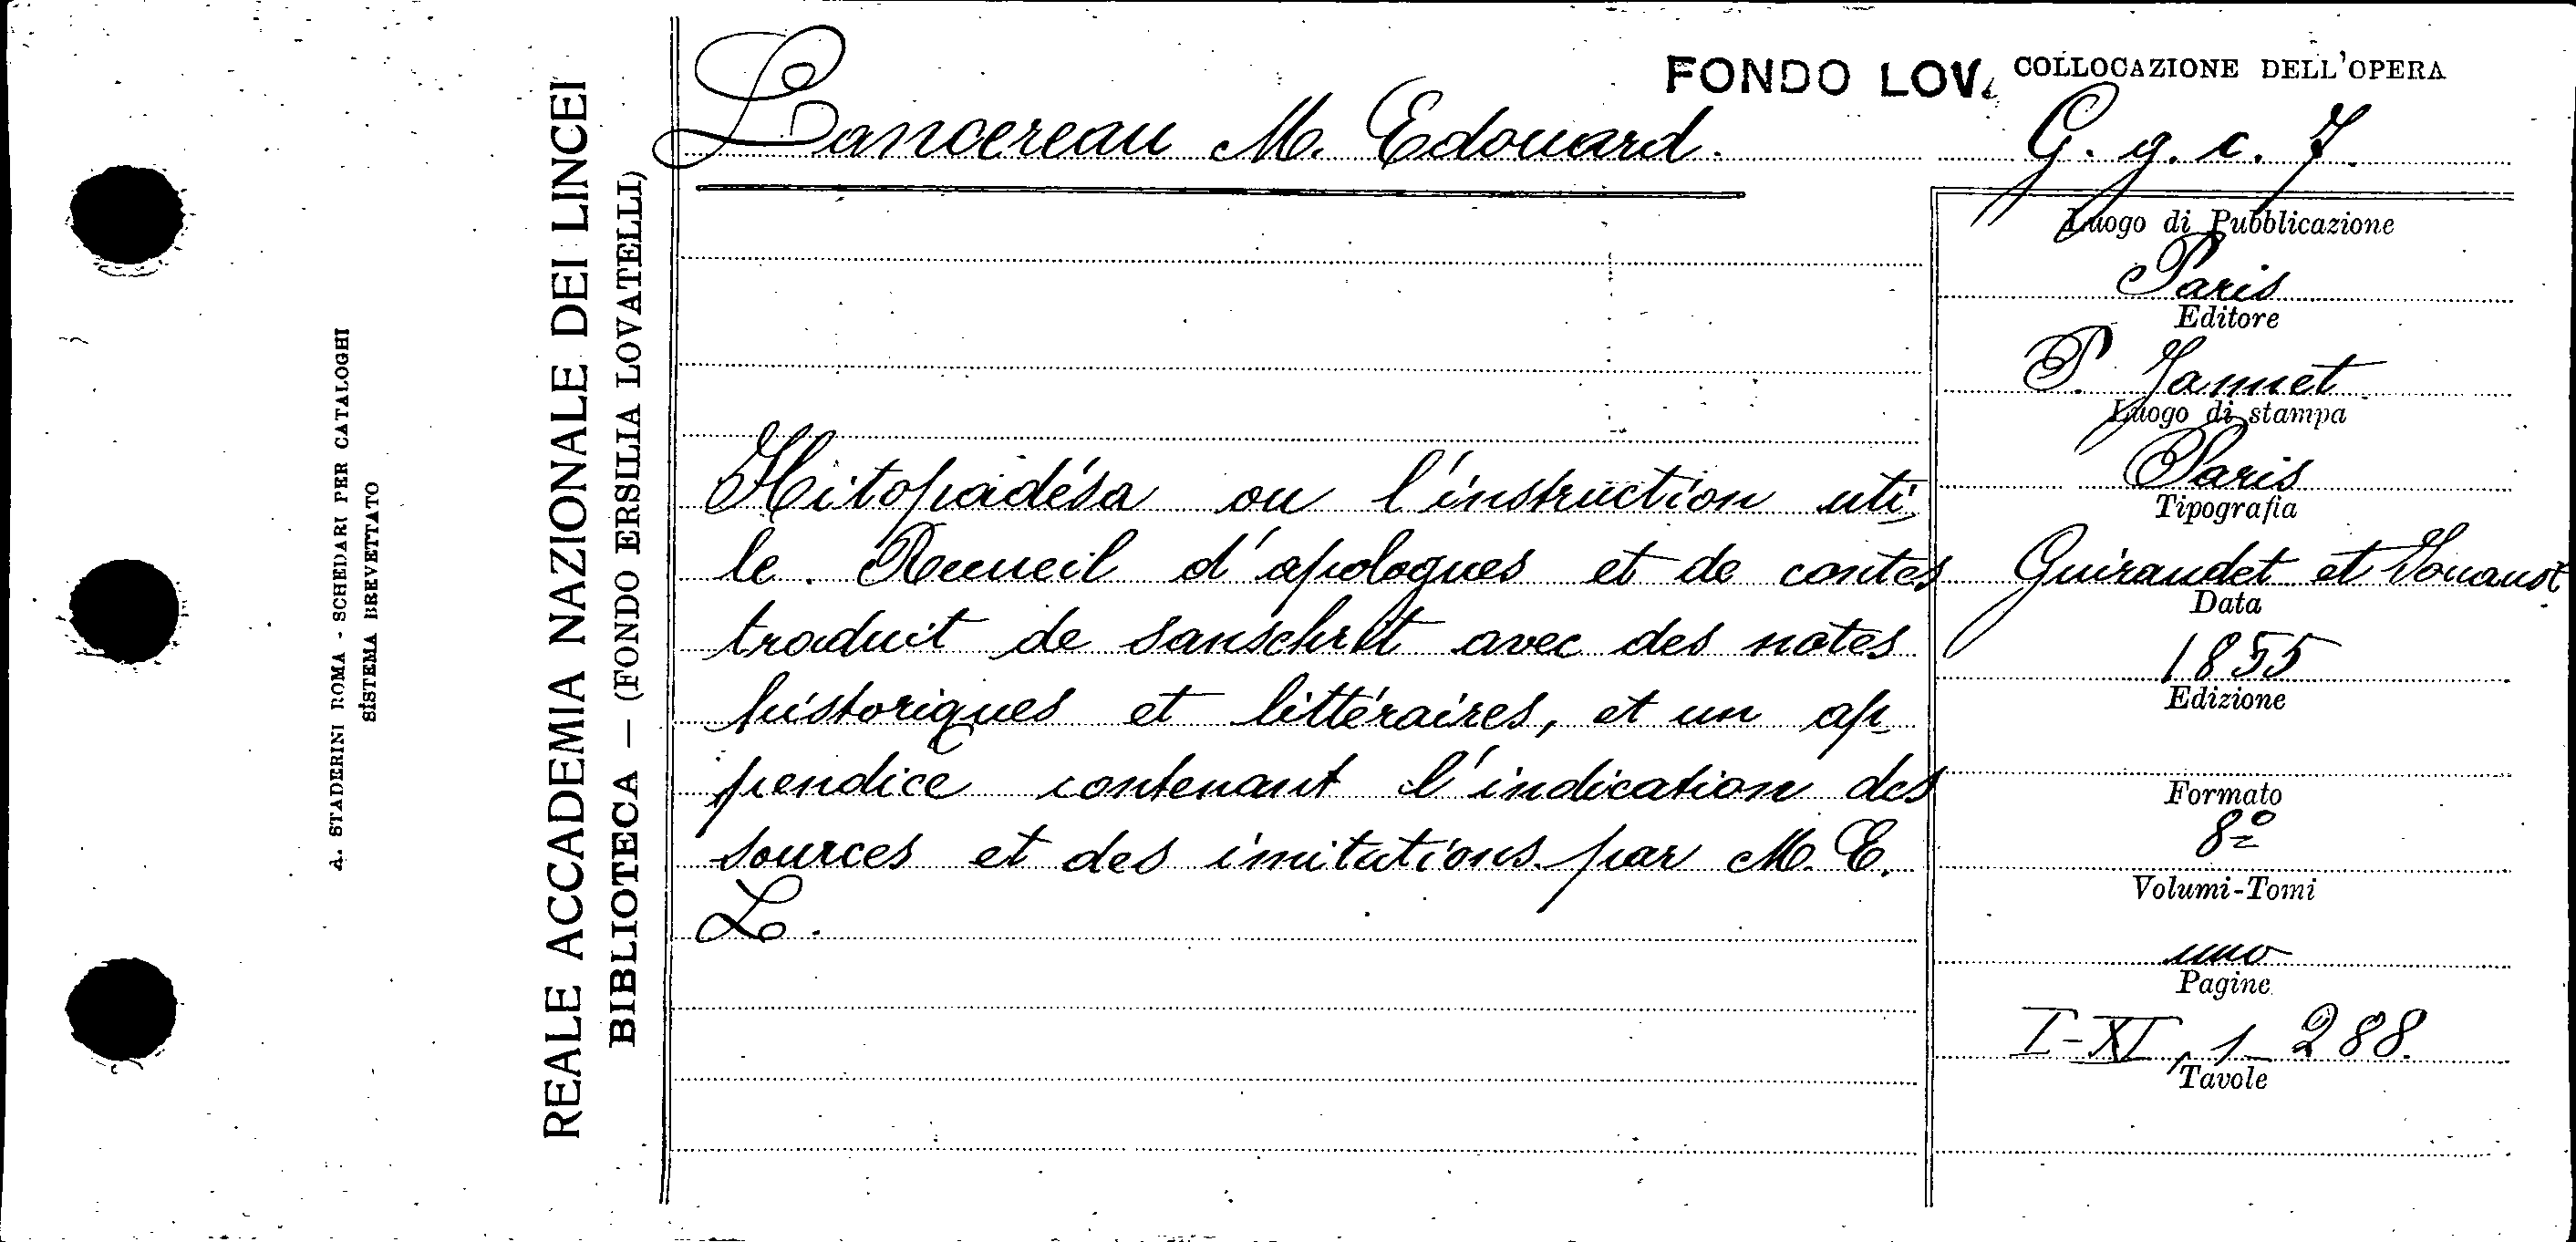 A. STADERINI ROMA - SCHEDARI PER CATALOGHI
SISTEMA BREVETTATO
REALE ACCADEMIA NAZIONALE DEI LINCEI
BIBLIOTECA — (FONDO ERSILIA LOVATELLI)
FONDO LOV.
Lancereau M. Edouard.
Hitopadésa ou l'instruction uti
le. Recueil d'apologues et de contes
traduit de sanschrit avec des notes
historiques et littéraires, et un ap
pendice contenant l'indication des
sources et des imitations par M. E.
L.
COLLOCAZIONE DELL'OPERA
G. g. c. 7.
Luogo di Pubblicazione
Paris
Editore
P. Jannet
Luogo di stampa
Paris
Tipografia
Guiraudet et Jouaust
Data
1855
Edizione
Formato
8º
Volumi-Tomi
uno
Pagine
I-XI, 1-288.
Tavole